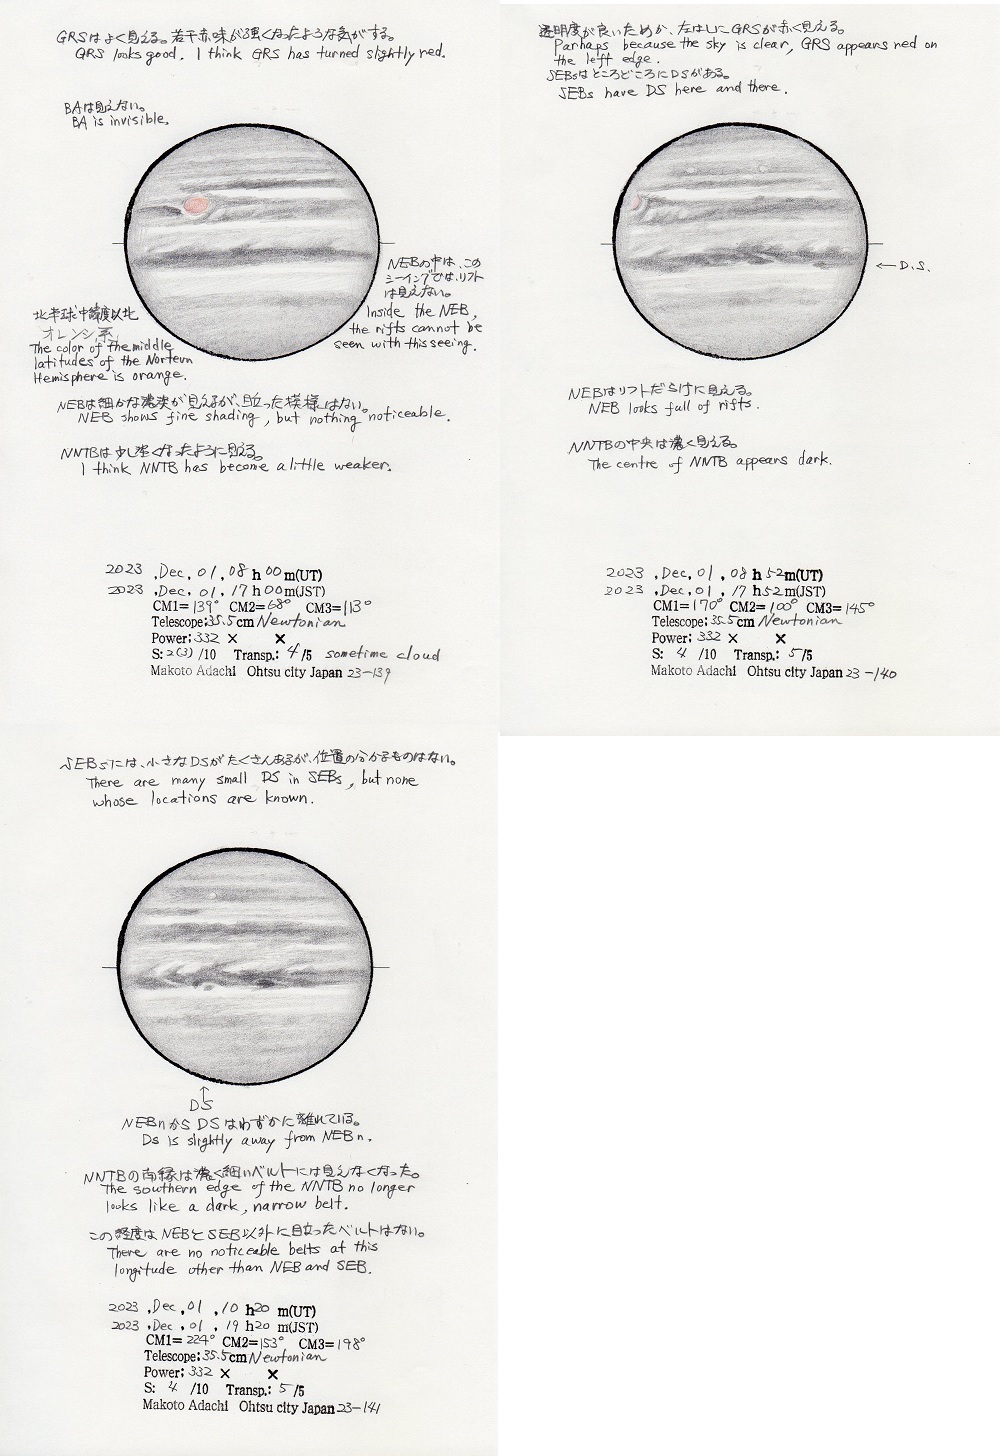 GRSはよく見える。若干赤味が強くなったような気がする。
GRS looks good. I think GRS has turned slightly red.
BAは見えない。
BA is invisible.
NEBの中は、この
シーイングでは、リフト
は見えない。
Inside the NEB,
the rifts cannot be
seen with this seeing.
北半球中緯度以北
オレンジ系
The color of the middle
latitudes of the Nortern
Hemisphere is orange.
NEBは細かな濃淡が見えるが、目立った模様はない。
NEB shows fine shading, but nothing noticeable.
NNTBは少し弱くなったように見える。
I think NNTB has become a little weaker.
2023 .Dec, 01, 08 h 00 m(UT)
2023 .Dec, 01, 17 h 00 m(JST)
CM1=139° CM2=68° CM3=113°
Telescope:35.5cm Newtonian
Power:332 × ×
S:2(3)/10 Transp.: 4/5 sometime cloud
Makoto Adachi Ohtsu city Japan 23-139
透明度が良いためか、左はしにGRSが赤く見える。
Parhaps because the sky is clear, GRS appears red on
the left edge.
SEBsはところどころにDSがある。
SEBs have DS here and there.
← D.S.
NEBはリフトだらけに見える。
NEB looks full of rifts.
NNTBの中央は濃く見える。
The centre of NNTB appears dark.
2023 .Dec, 01, 08 h 52 m(UT)
2023 .Dec, 01, 17 h 52 m(JST)
CM1=170° CM2=100° CM3=145°
Telescope:35.5cm Newtonian
Power:332 × ×
S: 4 /10 Transp.: 5/5
Makoto Adachi Ohtsu city Japan 23-140
SEBsには、小さなDSがたくさんあるが、位置の分かるものはない。
There are many small DS in SEBs, but none
whose locations are known.
↑
DS
NEBnからDSはわずかに離れている。
Ds is slightly away from NEBn.
NNTBの南縁は濃く細いベルトには見えなくなった。
The southern edge of the NNTB no longer
looks like a dark, narrow belt.
この経度はNEBとSEB以外に目立ったベルトはない。
There are no noticeable belts at this
longitude other than NEB and SEB.
2023 .Dec, 01, 10 h20 m(UT)
2023 .Dec, 01, 19 h20 m(JST)
CM1=224° CM2=153° CM3=198°
Telescope:35.5cm Newtonian
Power:332 × ×
S: 4 /10 Transp.: 5/5
Makoto Adachi Ohtsu city Japan 23-141